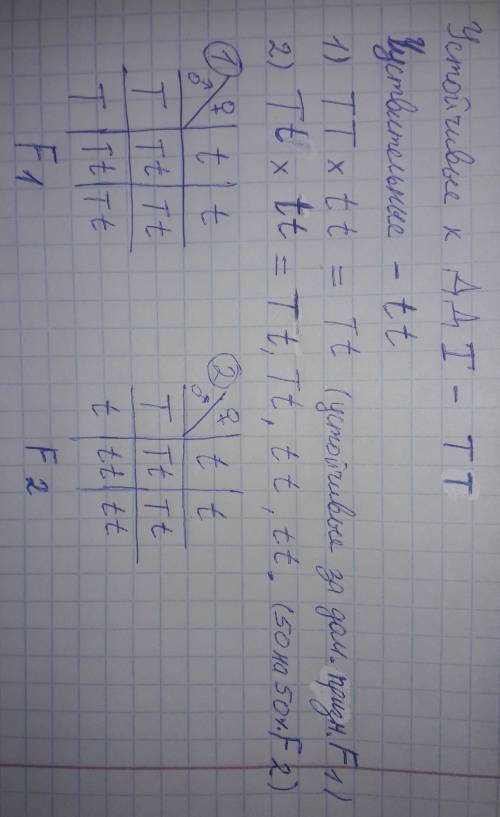 Устойчивые к ДДТ - ТТ
Чуствительные - tt
1) TT x tt = Tt (устойчивые за дом. призн. F1)
2) Tt x tt = Tt, Tt, tt, tt. (50 на 50%. F2)
① ♀ t t
♂
T Tt Tt
T Tt Tt
F1
② ♀ t t
♂
T Tt Tt
t tt tt
F2